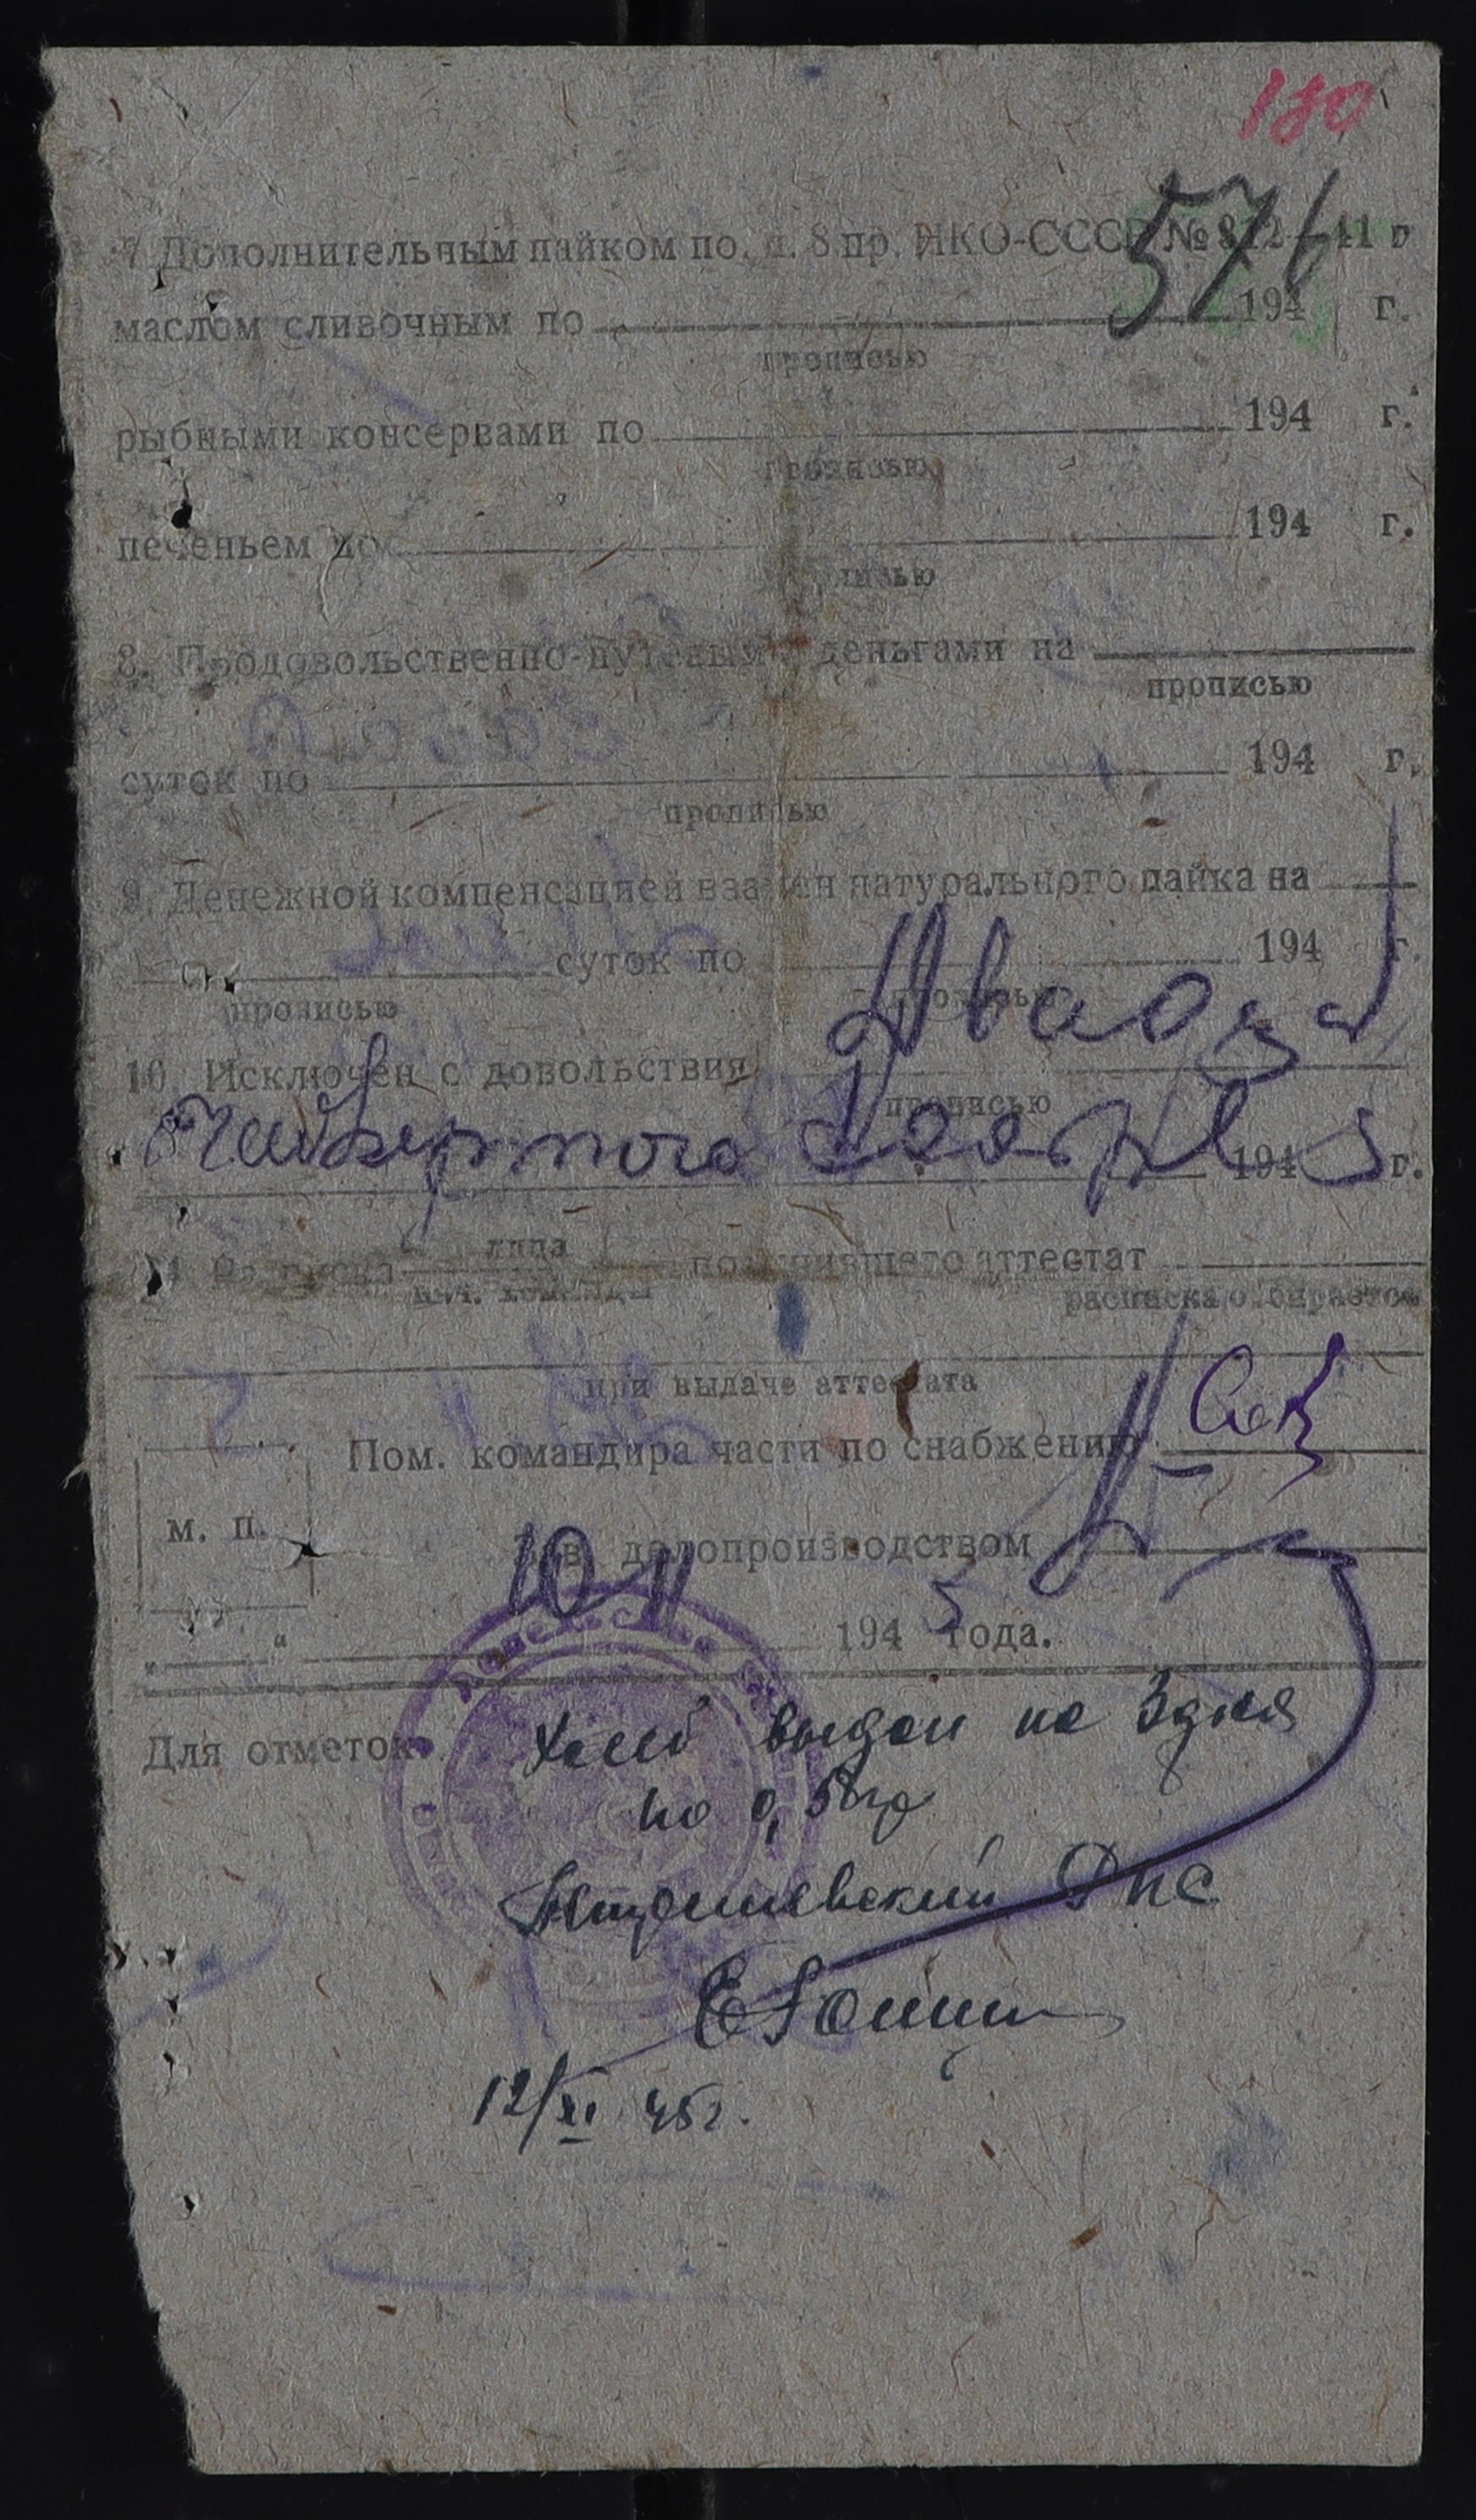 180
576
7 Дополнительным пайком по. п. 8 пр. НКО-СССР № 812—41 г
маслом сливочным по 194 г.
прописью
рыбными консервами по 194 г.
прописью
печеньем по 194 г.
прописью
8. Продовольственно-путевыми деньгами на
прописью
суток по 194 г.
прописью
9. Денежной компенсацией взамен натурального пайка на
суток по 194 г.
прописью прописью
10. Исключен с довольствия Двадца
прописью
Четвертого Ноября 1945 г.
11. Расписка лица получившего аттестат
нач. команды расписка отбирается
при выдаче аттестата
Пом. командира части по снабжению
м. п.
Зав. делопроизводством
10 11
1945 года.
Для отметок. Хлеб выдан на 3 дня
по 0,5
ДПС
12/XI 45г.